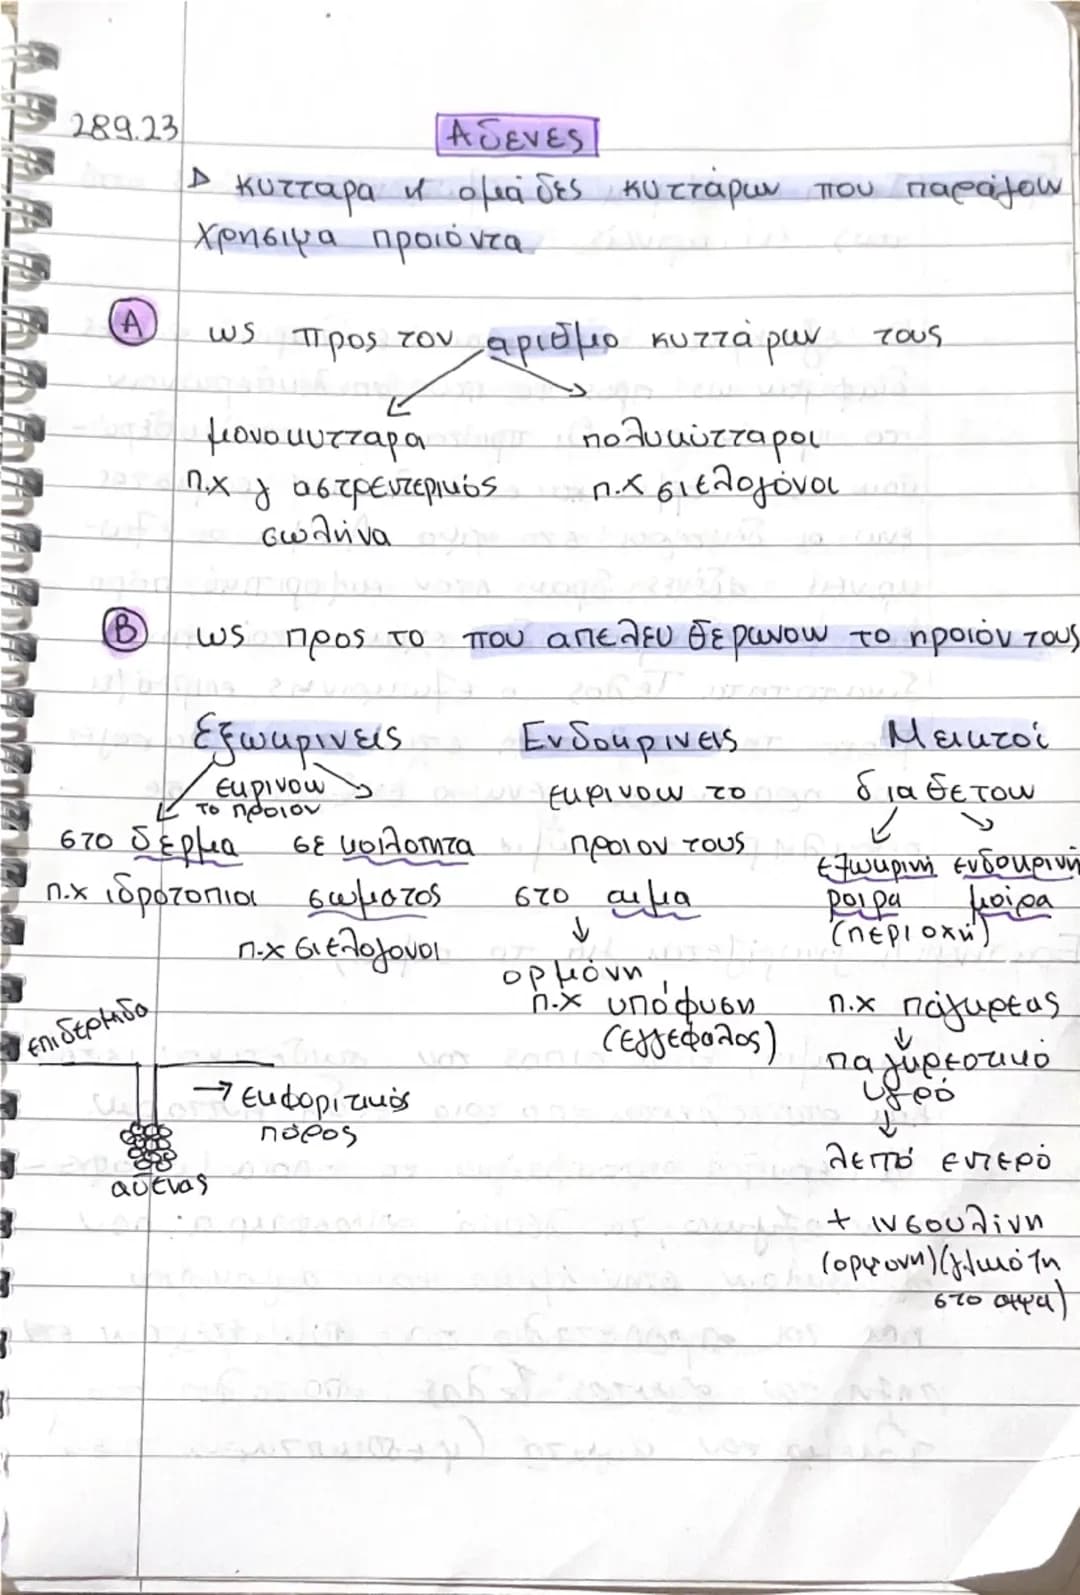 289.23
Αδενες
▷ κυτταρα ή ομάδες κυττάρων που παράγουν
χρησιμα προιόντα
Α ως προς τον αριθμο κυττάρων τους
μονοκυτταρα πολυκύτταροι
π.χ γαστρεντερικός π.χ σιελογόνοι
σωλήνα
Β ως προς το που απελευθερώνουν το προιόν τους
Εξωκρινείς Ενδοκρινεις Μεικτοί
εκρινουν το προιον εκρινουν το διαθετουν
στο δέρμα σε κοιλοτητα προιον τους εξωκρινή ενδοκρινή
π.χ ιδροτοποιοι σωματος στο αιμα μοιρα μοίρα
π.χ σιελογονοι ↓ (περιοχή)
ορμόνη
π.χ υπόφυση π.χ πάγκρεας
(εγγέφαλος) ↓
επιδερμιδα παγκρεατικό
υγρό
→ εκφορητικός ↓
πόρος λεπτό εντερό
αδενας
+ ινσουλίνη
(ορμονη)(γλυκόζη
στο αιμα)